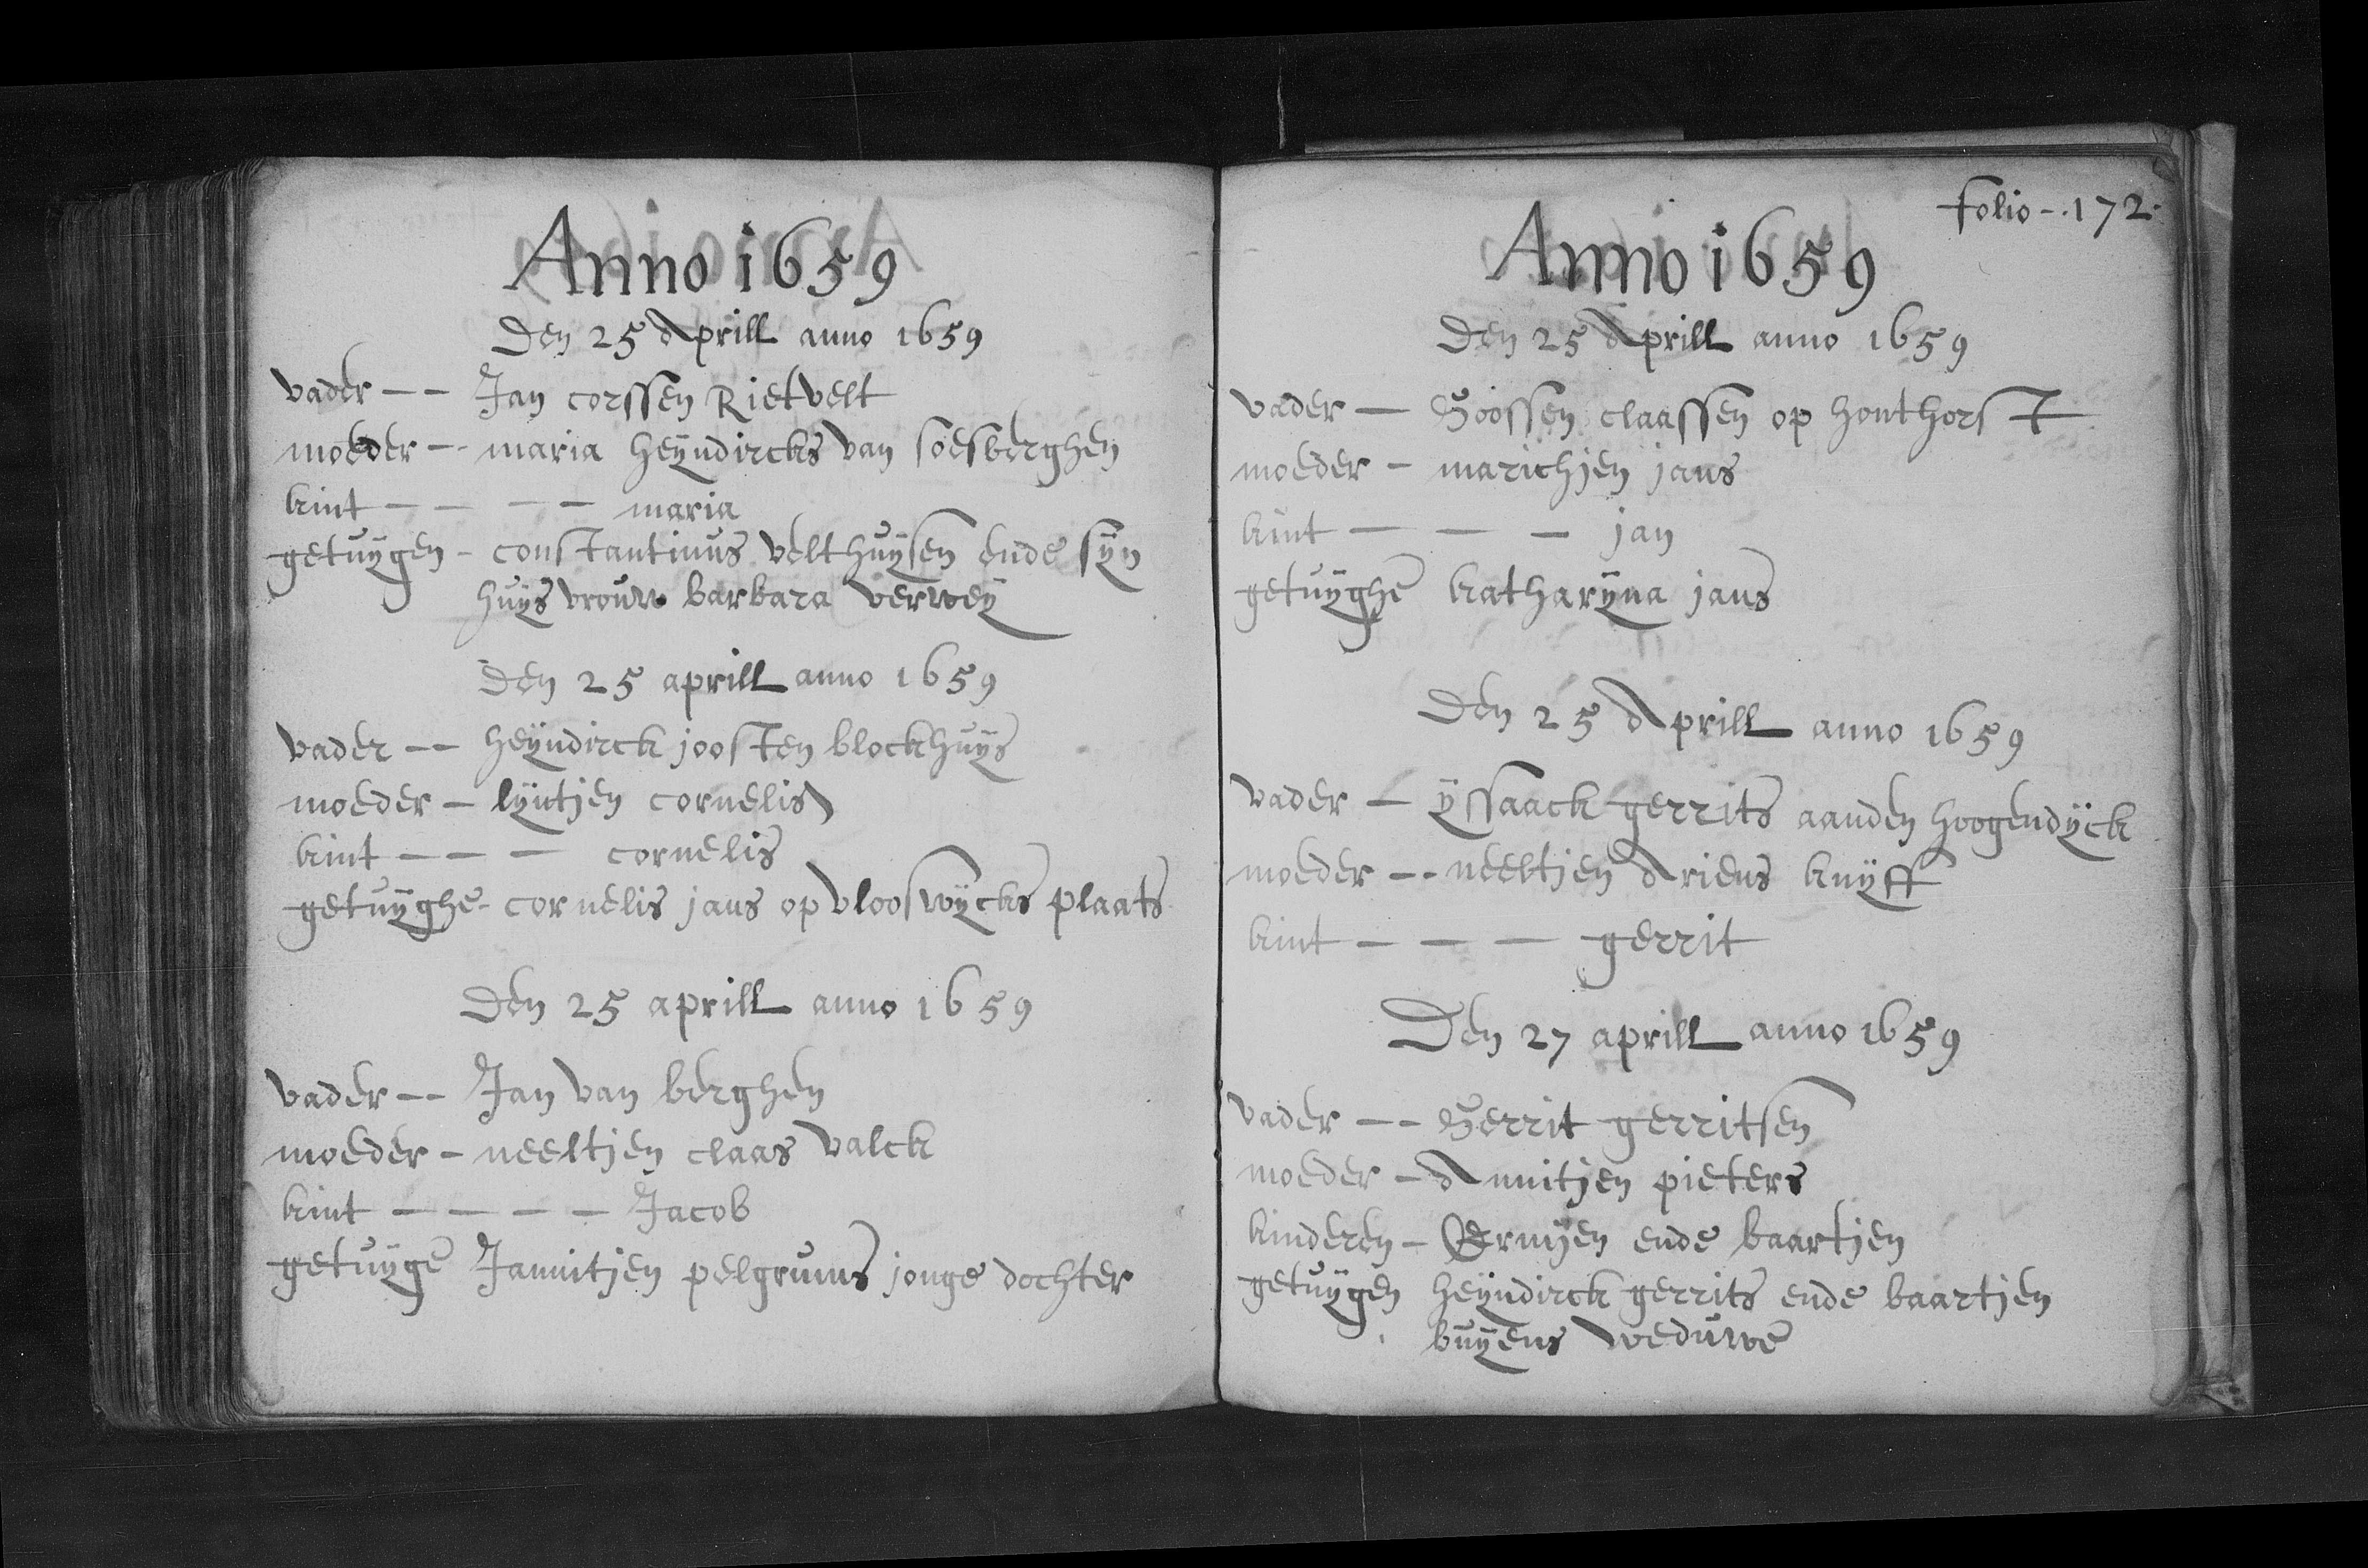 Anno 1659
Den 25 Aprill anno 1659
vader -- Jan corssen Rietvelt
moeder -- maria heyndircks van soesberghen
kint - - - - maria
getuÿgen - constantinus velthuÿsen ende sÿn
huÿs vrouw barbara verweÿ
Den 25 aprill anno 1659
vader -- heÿndirck joosten blockhuÿs
moeder - lÿntjen cornelis
kint - - - cornelis
getuÿghe - cornelis jans op vlooswÿcks plaats
Den 25 aprill anno 1659
vader -- Jan van berghen
moeder - neeltjen claas valck
kint - - - - Jacob
getuÿge Jannitjen pelgrums jonge dochter
folio - 172
Anno 1659
Den 25 Aprill anno 1659
vader - Goossen claassen op honthorst
moeder - marichjen jans
kint - - - jan
getuÿghe katharÿna jans
Den 25 Aprill anno 1659
vader - ÿssaack gerrits aanden hoogendÿck
moeder -- neeltjen Ariens knÿff
kint - - - gerrit
Den 27 aprill anno 1659
vader -- Gerrit gerritsen
moeder - Annitjen pieters
kinderen - ende baartjen
getuÿgen heÿndirck gerrits ende baartjen
buÿens weduwe